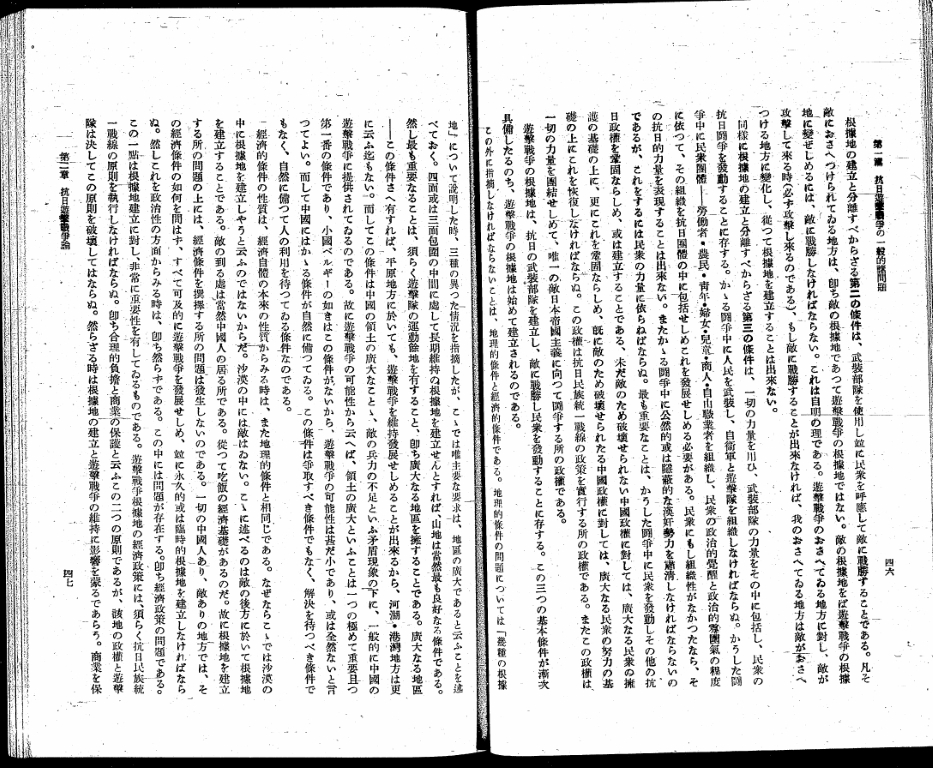 第一編 抗日遊擊戰爭の一般的諸問題
四六
根據地の建立と分離すべからざる第二の條件は、武裝部隊を使用し竝に民衆を呼應して敵に戰勝することである。凡そ
敵におさへつけられてゐる地方は、卽ち敵の根據地であつて遊擊戰爭の根據地ではない。敵の根據地をば遊擊戰爭の根據
地に變ぜしめるには、敵に戰勝しなければならない。これは自明の理である。遊擊戰爭のおさへてゐる地方に對し、敵が
攻擊して來る時(必ず攻擊し來るのである)、もし敵に戰勝することが出來なければ、我のおさへてゐる地方は敵がおさへ
つける地方に變化し、從つて根據地を建立することは出來ない。
同樣に根據地の建立と分離すべからざる第三の條件は、一切の力量を用ひ、武裝部隊の力量をその中に包括し、民衆の
抗日鬪爭を發動することに存する。かゝる鬪爭中に人民を武裝し、自衞軍と遊擊隊を組織しなければならぬ。かうした鬪
爭中に民衆團體――勞働者・農民・靑年・婦女・兒童・商人・自由職業者を組織し、民衆の政治的覺醒と政治的雰圍氣の程度
に依つて、その組織を抗日團體の中に包括せしめこれを發展せしめる必要がある。民衆にもし組織性がなかつたなら、そ
の抗日的力量を表現することは出來ない。またかゝる鬪爭中に公然的或は隱蔽的な漢奸勢力を肅淸しなければならないの
であるが、これをするには民衆の力量に依らねばならぬ。最も重要なことは、かうした鬪爭中に民衆を發動しその他の抗
日政權を鞏固ならしめ、或は建立することである、未だ敵のため破壞せられない中國政權に對しては、廣大なる民衆の擁
護の基礎の上に、更にこれを鞏固ならしめ、旣に敵のため破壞せられたる中國政權に對しては、廣大なる民衆の努力の基
礎の上にこれを恢復しなければならない。この政權は抗日民族統一戰線の政策を實行する所の政權である。またこの政權は
一切の力量を團結せしめて、唯一の敵日本帝國主義に向つて鬪爭する所の政權である。
遊擊戰爭の根據地は、抗日の武裝部隊を建立し、敵に戰勝し民衆を發動することに存する。この三つの基本條件が漸次
具備したるのち、遊擊戰爭の根據地は始めて建立されるのである。
この外に指摘しなければならないことは、地理的條件と經濟的條件である。地理的條件の問題については「幾種の根據
地」について說明した時、三種の異つた情況を指摘したが、こゝでは唯主要な要求は、地區の廣大であると云ふことを述
べておく。四面或は三面包圍の中間に處して長期維持の根據地を建立せんとすれば、山地は當然最も良好なる條件である。
然し最も重要なることは、須らく遊擊隊の運動餘地を有すること、卽ち廣大なる地區を擁することである。廣大なる地區
――この條件さへ有すれば、平原地方に於いても、遊擊戰爭を維持發展せしめることが出來るから、河湖・港灣地方は更
に云ふ迄もない。而してこの條件は中國の領土の廣大なことゝ、敵の兵力の不足といふ矛盾現象の下に、一般的に中國の
遊擊戰爭に提供されてゐるのである。故に遊擊戰爭の可能性から云へば、領土の廣大といふことは一つの極めて重要且つ
第一番の條件であり、小國ベルギーの如きはこの條件がないから、遊擊戰爭の可能性は甚だ小であり、或は全然ないと言
つてよい。而して中國にはかゝる條件が自然に備つてゐる。この條件は爭取すべき條件でもなく、解決を待つべき條件で
もなく、自然に備つて人の利用を待つてゐる條件なのである。
經濟的條件の性質は、經濟自體の本來の性質からみる時は、また地理的條件と相同じである。なぜならこゝでは沙漠の
中に根據地を建立しやうと云ふのではないからだ。沙漠の中には敵はゐない。こゝに述べるのは敵の後方に於いて根據地
を建立することである。敵の到る處は當然中國人の居る所である。從つて吃飯の經濟基礎があるのだ。故に根據地を建立
する所の問題の上には、經濟條件を撰擇する所の問題は發生しないのである。一切の中國人あり、敵ありの地方では、そ
の經濟條件の如何を問はず、すべて可及的に遊擊戰爭を發展せしめ、竝に永久的或は臨時的根據地を建立しなければなら
ぬ。然しこれを政治性の方面からみる時は、卽ち然らずである。この中には問題が存在する。卽ち經濟政策の問題である。
この一點は根據地建立に對し、非常に重要性を有してゐるものである。遊擊戰爭根據地の經濟政策には、須らく抗日民族統
一戰線の原則を執行しなければならぬ。卽ち合理的負擔と商業の保護と云ふこの二つの原則であるが、該地の政權と遊擊
隊は決してこの原則を破壞してはならぬ。然らざる時は根據地の建立と遊擊戰爭の維持に影響を蒙るであらう。商業を保
第二章 抗日遊擊戰爭論
四七